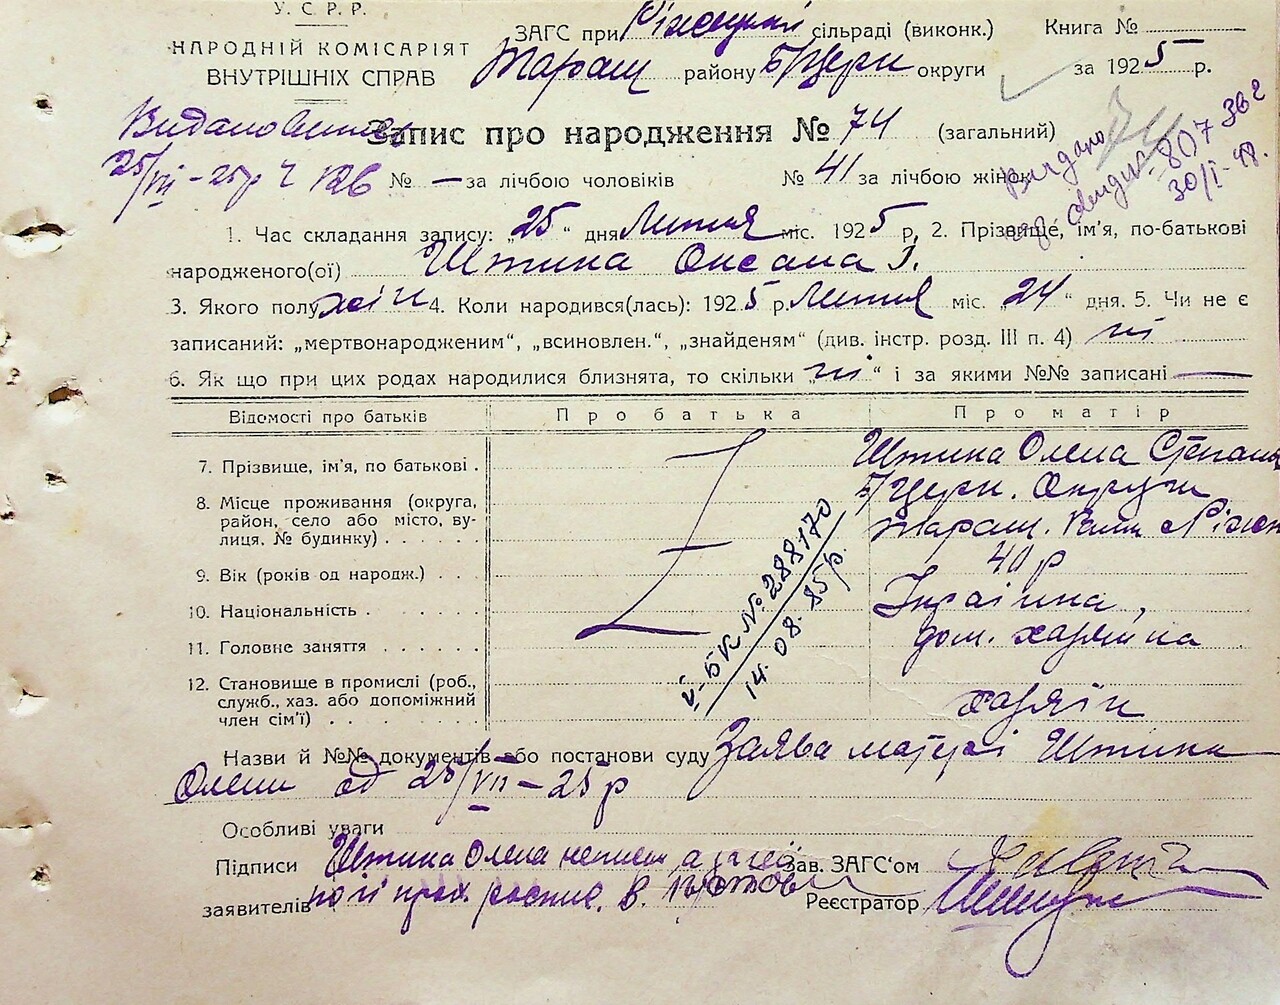 У.С.Р.Р.
НАРОДНІЙ КОМІСАРІЯТ
ВНУТРІШНІХ СПРАВ
ЗАГС при сільраді (виконк.) Книга №
Тараш району Б/Церк округи за 1925 р.
Видано
Запис про народження № 74 (загальний)
25/VII-25р Ч 126
№ — за лічбою чоловіків № 41 за лічбою жінок
Видано
807
30/I-48.
1. Час складання запису: „25“ дня Липня міс. 1925 р. 2. Прізвище, ім'я, по-батькові
народженого(ої) Штина Оксана
3. Якого полу жін 4. Коли народився(лась): 1925 р. Липня міс. „24“ дня. 5. Чи не є
записаний: „мертвонародженим“, „всиновлен.“, „знайденям“ (див. інстр. розд. III п. 4) ні
6. Як що при цих родах народилися близнята, то скільки „ні“ і за якими №№ записані —
Відомості про батьків Про батька Про матір
7. Прізвище, ім'я, по батькові . Штина Олена Степан
8. Місце проживання (округа, район, село або місто, вулиця, № будинку) . . . . Б/Церк. Округи
Тараш. Рай
9. Вік (років од народж.) . . . 40 р
10. Національність . . . . . . Українка,
11. Головне заняття . . . . . . дом. хазяйка
12. Становище в промислі (роб., служб., хаз. або допоміжний член сім'ї) . . . . . . хазяїн
V-БК № 288170
14.08.85р.
Назви й №№ документів або постанови суду Заява матері Штина
Олени од 25/VII-25р
Особливі уваги
Підписи Штина Олена неписм, а за неї Зав. ЗАГС'ом
заявителів по її прох. роспис. В. Реєстратор